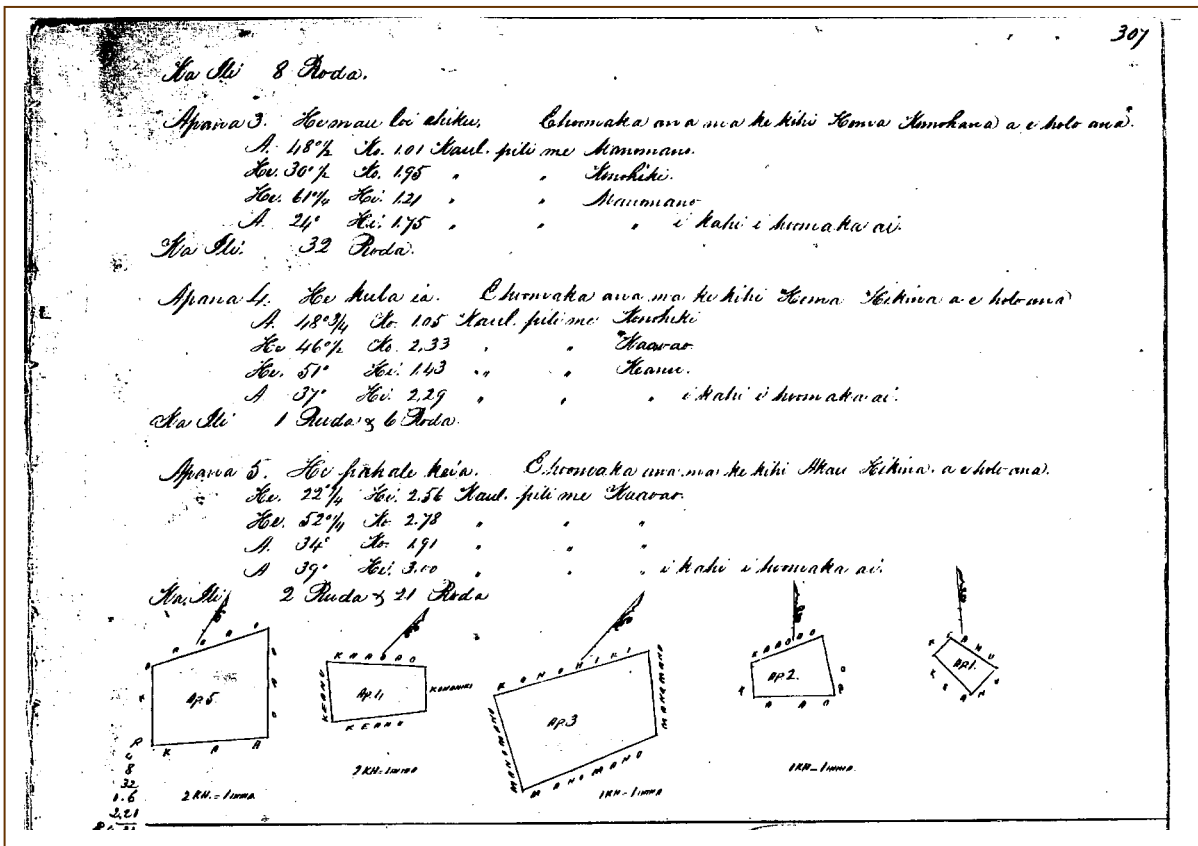 307
Ka Ili 8 Roda.
Apana 3. He mau loi ahiku. E hoomaka ana ma ke kihi Hema Komohana a e holo ana.
A. 48°½ Ko. 1.01 Kaul. pili me Manomano.
He. 30°½ Ko. 1.95 " " Konohiki.
He. 61°¼ Hi. 1.21 " " Manomano
A. 24° Hi. 1.75 " " " i kahi i hoomaka ai.
Ka Ili. 32 Roda.
Apana 4. He kula ia. E hoomaka ana ma ke kihi Hema Hikina a e holo ana
A. 48°¾ Ko. 1.05 Kaul. pili me Konohiki
He 46°½ Ko. 2.33 " " Kaavao.
He. 51° Hi. 1.43 " " Keanu.
A 37° Hi. 2.29 " " " i kahi i hoomaka ai.
Ka Ili 1 Ruda & 6 Roda.
Apana 5. He pahale keia. E hoomaka ana ma ke kihi Akau Hikina. a e holo ana.
He. 22°¼ Hi. 2.56 Kaul. pili me Kaavao.
He. 52°¼ Ko. 2.78 " " "
A. 34° Ko. 1.91 " " "
A 39° Hi. 3.00 " " " i kahi i hoomaka ai.
Ka Ili 2 Ruda & 21 Roda
KAAVAO
KONOHIKI
Ap.5. KEANU Ap.4 KONOHIKI MANOMANO Ap.3 MANOMANO Ap.2. Ap.1.
KEANU
MANOMANO
R
8
32
1.6
2.21
2 KH.=1 iniha 2 KH.=1 iniha 1KH=1 iniha 1KH=1 iniha.